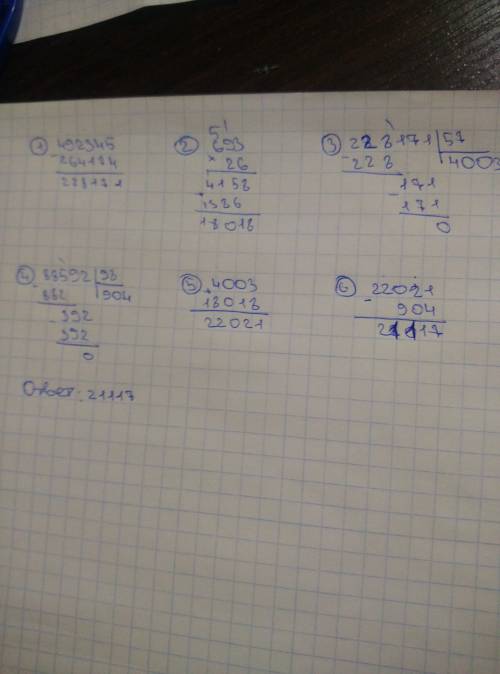 ① 492345
- 264174
228171
② 51
693
× 26
4158
+ 1386
18018
③ 228171 | 57
- 228 | 4003
171
- 171
0
④ 88592 | 98
- 882 | 904
- 392
392
0
⑤ 4003
+ 18018
22021
⑥ 22021
- 904
21117
Ответ: 21117